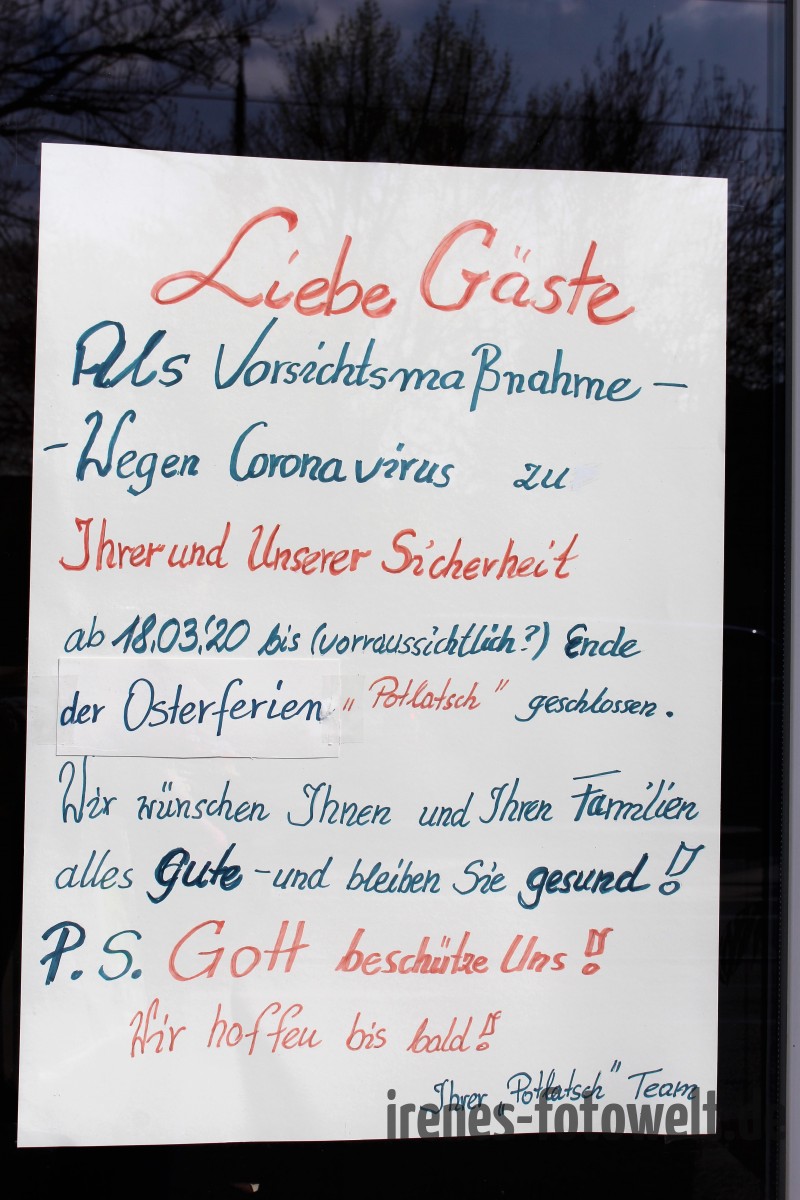 Liebe Gäste
Als Vorsichtsmaßnahme -
- Wegen Coronavirus zu
Ihrer und Unserer Sicherheit
ab 18.03.'20 bis (vorraussichtlich?) Ende
der Osterferien „Potlatsch" geschlossen.
Wir wünschen Ihnen und Ihren Familien
alles Gute - und bleiben Sie gesund!
P.S. Gott beschütze Uns!
Wir hoffen bis bald!
Ihrer „Potlatsch" Team
irenes-fotowelt.de